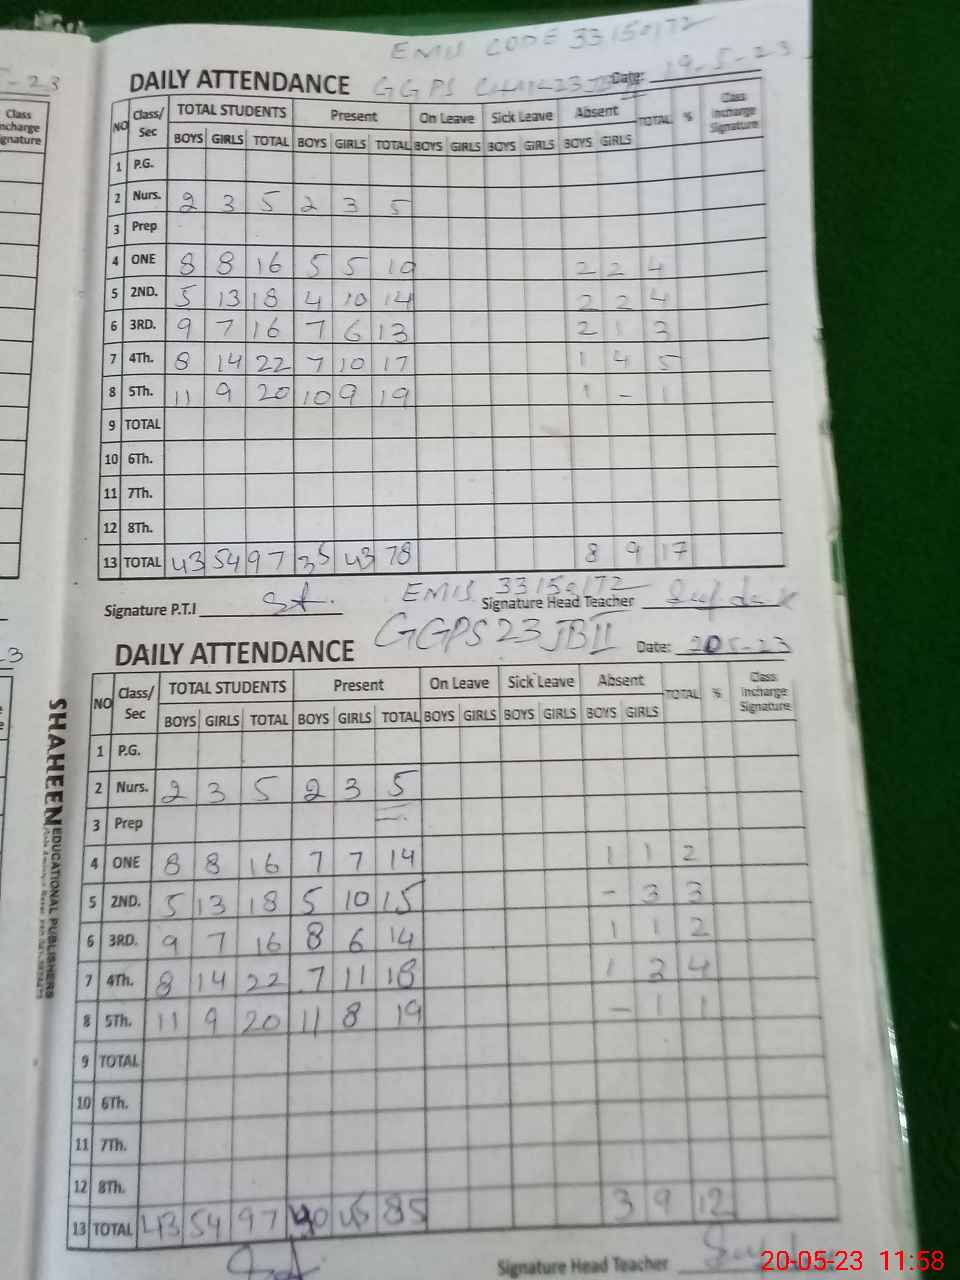 EMIS CODE 33150172
DAILY ATTENDANCE GGPS Date: 19-5-23
NO Class/Sec TOTAL STUDENTS Present On Leave Sick Leave Absent TOTAL % Class Incharge Signature
BOYS GIRLS TOTAL BOYS GIRLS TOTAL BOYS GIRLS BOYS GIRLS BOYS GIRLS
1 P.G.
2 Nurs. 2 3 5 2 3 5
3 Prep
4 ONE 8 8 16 5 5 10 2 2 4
5 2ND. 5 13 18 4 10 14 2 2 4
6 3RD. 9 7 16 7 6 13 2 1 3
7 4Th. 8 14 22 7 10 17 1 4 5
8 5Th. 11 9 20 10 9 19 1 - 1
9 TOTAL
10 6Th.
11 7Th.
12 8Th.
13 TOTAL 43 54 97 35 43 78 8 9 17
EMIS 33150172
Signature P.T.I Signature Head Teacher
GGPS 23 JB II
DAILY ATTENDANCE Date: 20-5-23
NO Class/Sec TOTAL STUDENTS Present On Leave Sick Leave Absent TOTAL % Class Incharge Signature
BOYS GIRLS TOTAL BOYS GIRLS TOTAL BOYS GIRLS BOYS GIRLS BOYS GIRLS
1 P.G.
2 Nurs. 2 3 5 2 3 5
3 Prep
4 ONE 8 8 16 7 7 14 1 1 2
5 2ND. 5 13 18 5 10 15 - 3 3
6 3RD. 9 7 16 8 6 14 1 1 2
7 4Th. 8 14 22 7 11 18 1 3 4
8 5Th. 11 9 20 11 8 19 - 1 1
9 TOTAL
10 6Th.
11 7Th.
12 8Th.
13 TOTAL 43 54 97 40 45 85 3 9 12
Signature Head Teacher
SHAHEEN EDUCATIONAL PUBLISHERS
Class Incharge Signature
20-05-23 11:58